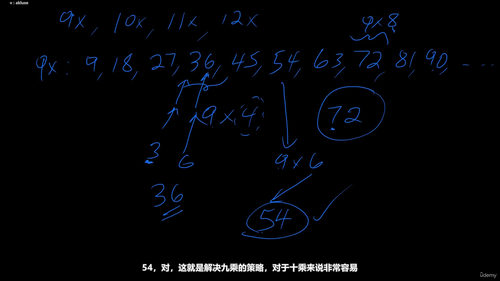 9x, 10x, 11x, 12x
9x8
9x: 9, 18, 27, 36, 45, 54, 63, 72, 81, 90, ...
9x4
72
3 6
9x6
36
54
54，对，这就是解决九乘的策略，对于十乘来说非常容易
ûdemy